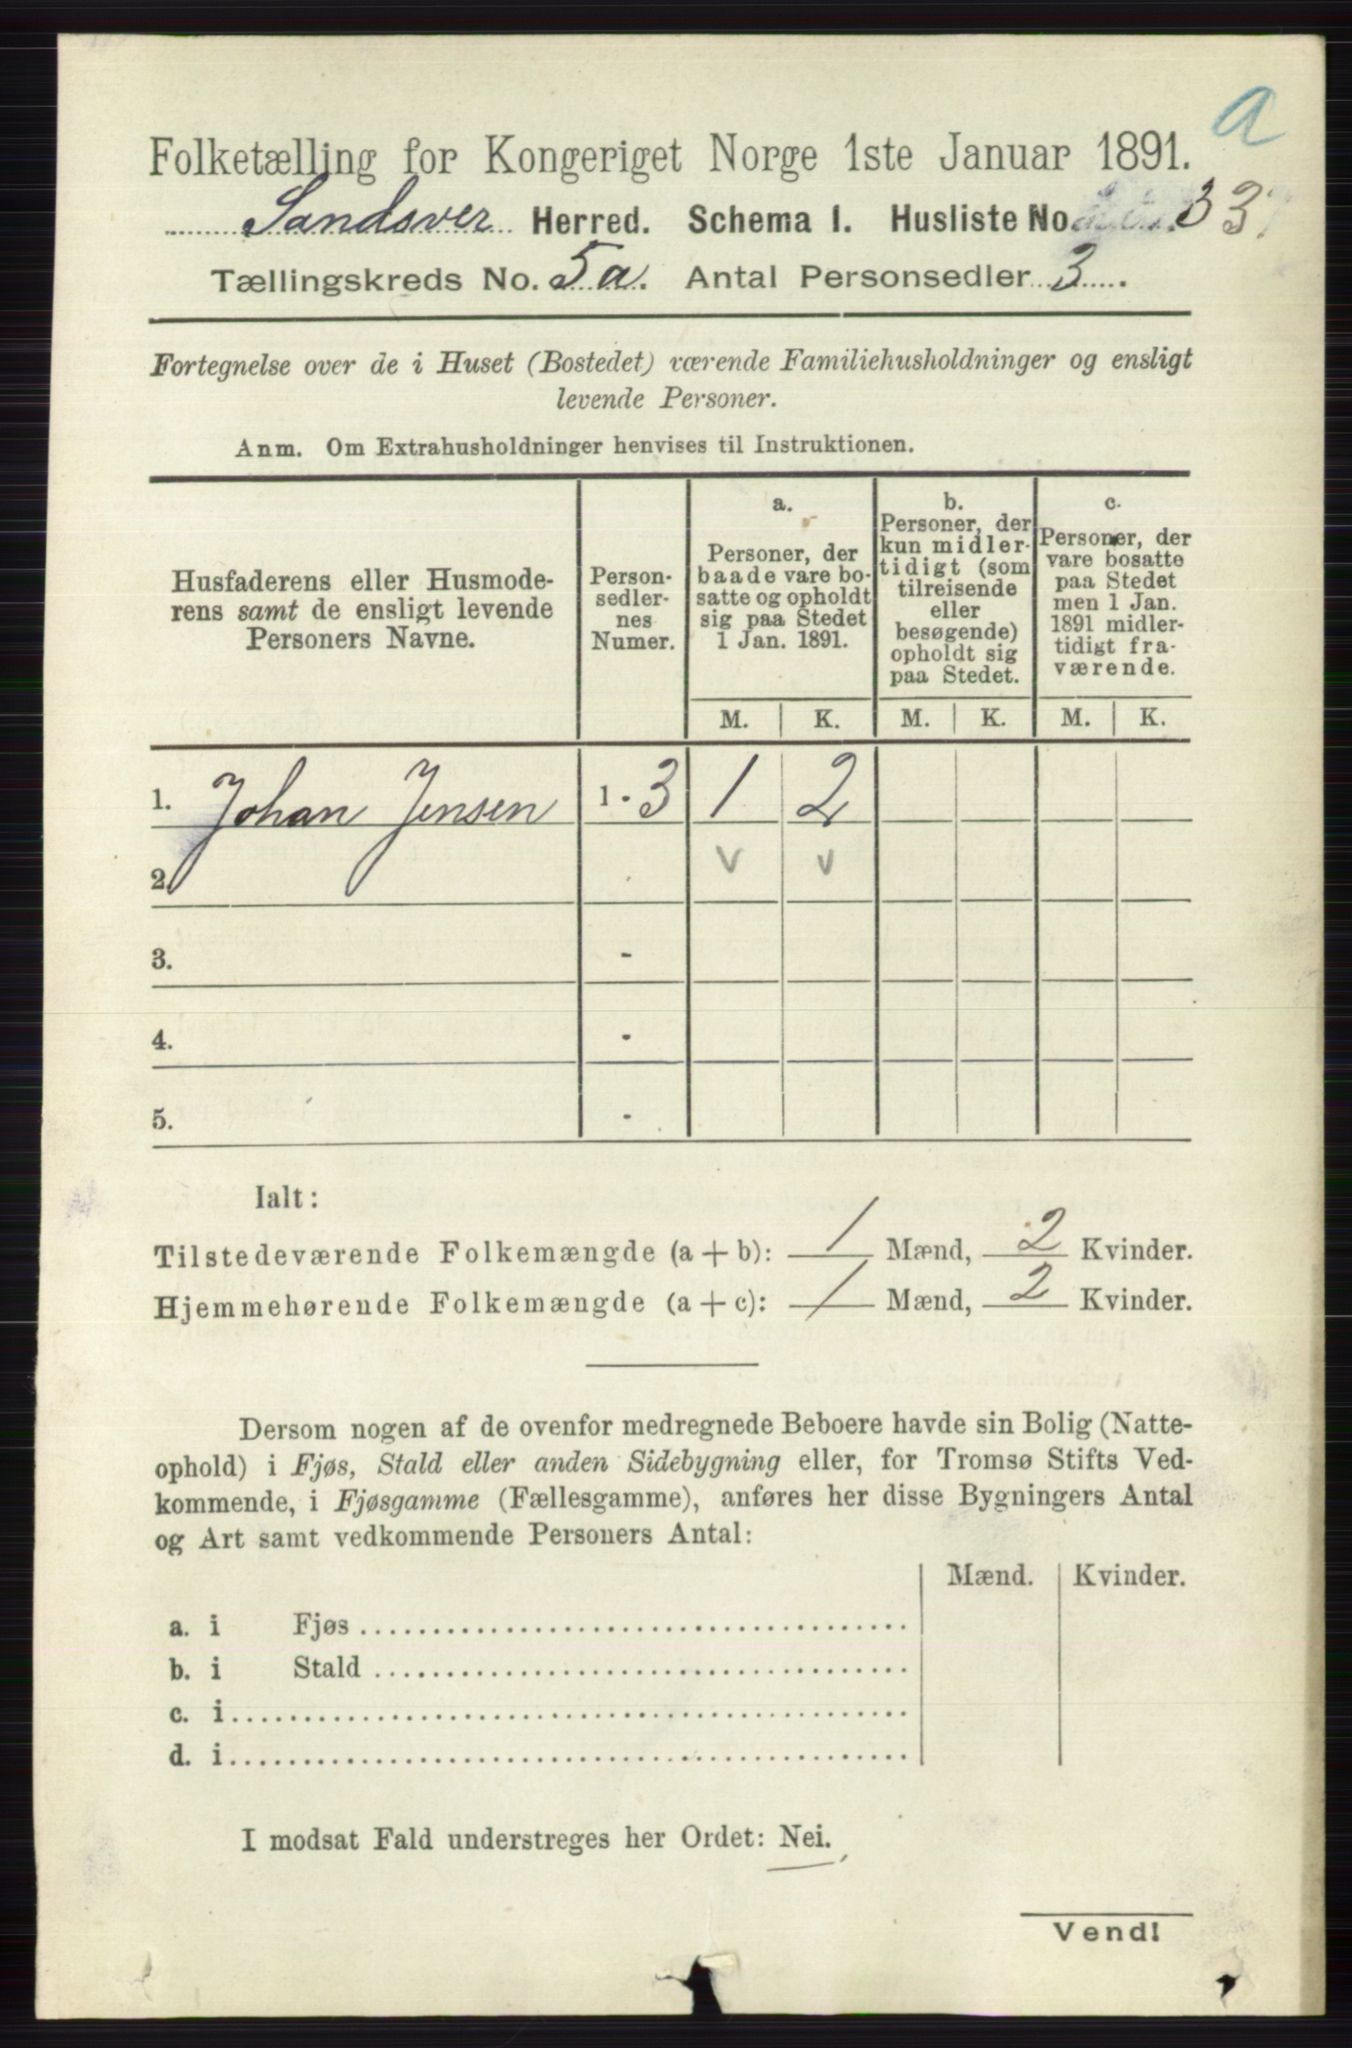 a
Folketælling for Kongeriget Norge 1ste Januar 1891.
Sandsver Herred. Schema 1. Husliste No. 33
Tællingskreds No. 5 a. Antal Personsedler 3.
Fortegnelse over de i Huset (Bostedet) værende Familiehusholdninger og ensligt
levende Personer.
Anm. Om Extrahusholdninger henvises til Instruktionen.
Husfaderens eller Husmode-
rens samt de ensligt levende
Personers Navne.
Person-
sedler-
nes
Numer.
a.
Personer, der
baade vare bo-
satte og opholdt
sig paa Stedet
1 Jan. 1891.
b.
Personer, der
kun midler-
tidigt (som
tilreisende
eller
besøgende)
opholdt sig
paa Stedet.
c.
Personer, der
vare bosatte
paa Stedet
men 1 Jan.
1891 midler-
tidigt fra-
værende.
M. K. M. K. M. K.
1. Johan Jensen 1 - 3 1 2
2. v v
3. -
4. -
5. -
Ialt:
Tilstedeværende Folkemængde (a + b): 1 Mænd, 2 Kvinder.
Hjemmehørende Folkemængde (a + c): 1 Mænd, 2 Kvinder.
Dersom nogen af de ovenfor medregnede Beboere havde sin Bolig (Natte-
ophold) i Fjøs, Stald eller anden Sidebygning eller, for Tromsø Stifts Ved-
kommende, i Fjøsgamme (Fællesgamme), anføres her disse Bygningers Antal
og Art samt vedkommende Personers Antal:
Mænd. Kvinder.
a. i Fjøs
b. i Stald
c. i
d. i
I modsat Fald understreges her Ordet: Nei.
Vend!